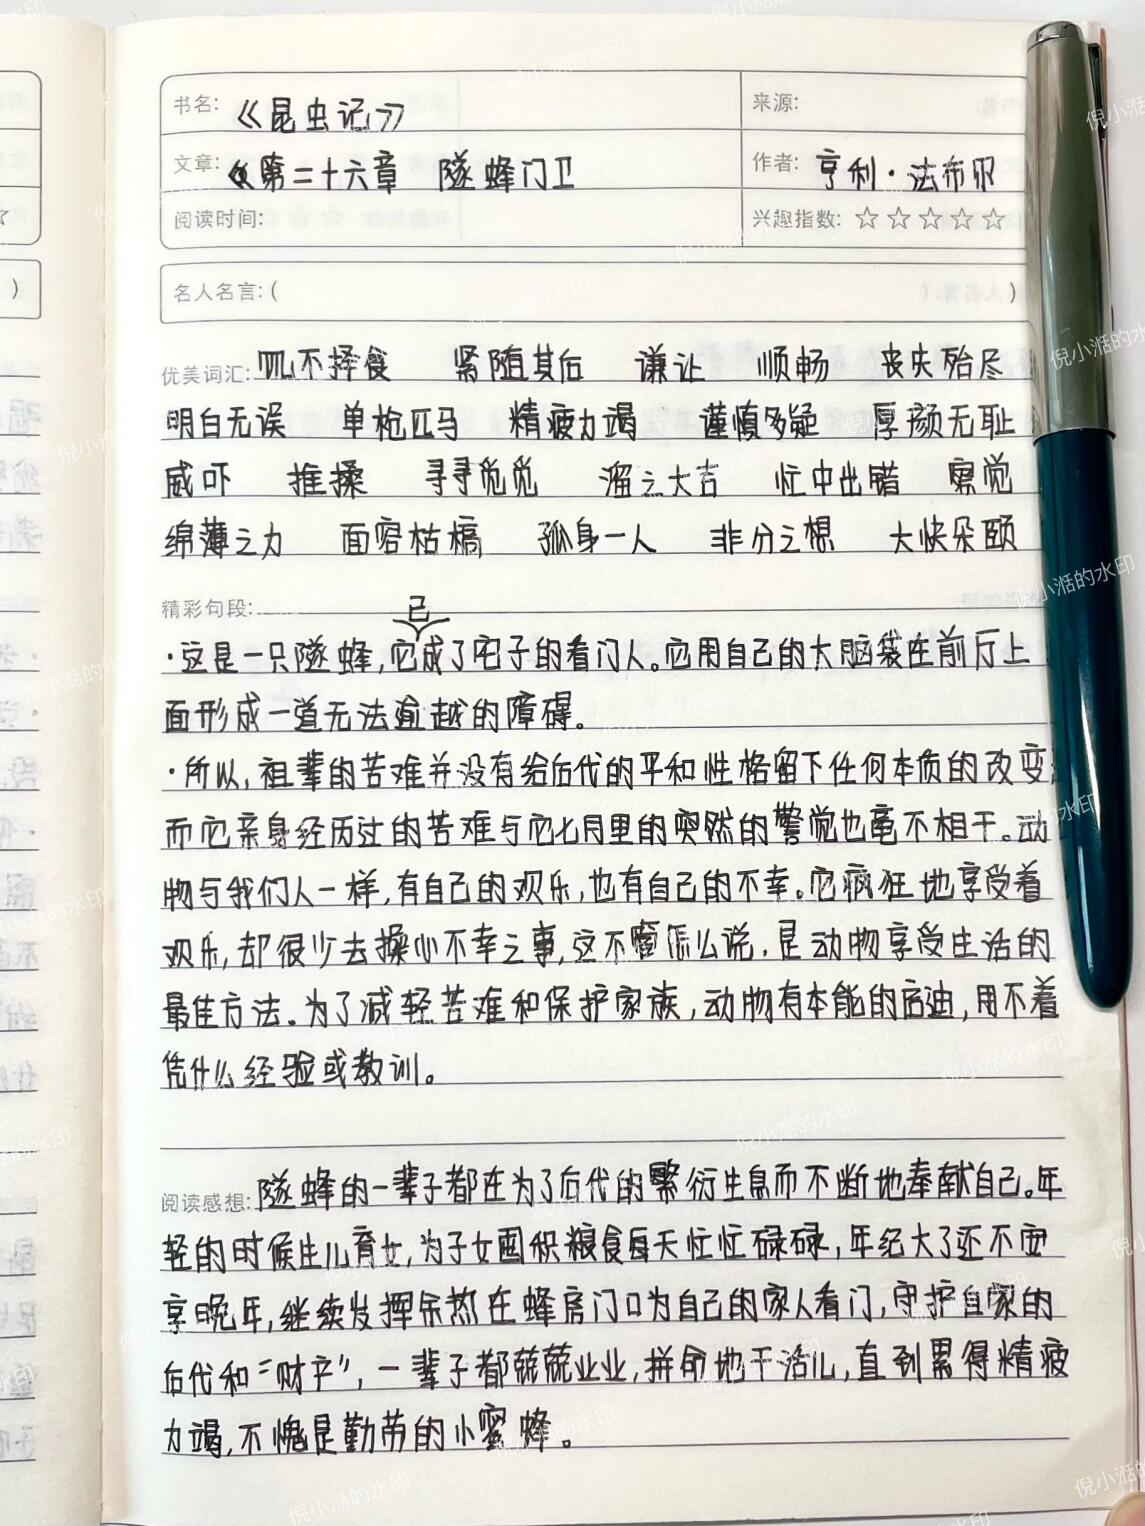 书名:《昆虫记》 来源:
文章:《第二十六章 隧蜂门卫 作者:亨利·法布尔
阅读时间: 兴趣指数:☆☆☆☆☆
名人名言:( )
优美词汇: 叽不择食 紧随其后 谦让 顺畅 丧失殆尽
明白无误 单枪匹马 精疲力竭 谨慎多疑 厚颜无耻
威吓 推搡 寻寻觅觅 溜之大吉 忙中出错 察觉
绵薄之力 面容枯槁 孤身一人 非分之想 大快朵颐
精彩句段:
·这是一只隧蜂,它已成了宅子的看门人。它用自己的大脑袋在前厅上
面形成一道无法逾越的障碍。
·所以,祖辈的苦难并没有给后代的平和性格留下任何本质的改变
而它亲身经历过的苦难与它七月里的突然的警觉也毫不相干。动
物与我们人一样,有自己的欢乐,也有自己的不幸。它疯狂地享受着
欢乐,却很少去操心不幸之事,这不管怎么说,是动物享受生活的
最佳方法。为了减轻苦难和保护家族,动物有本能的启迪,用不着
凭什么经验或教训。
阅读感想: 隧蜂的一辈子都在为了后代的繁衍生息而不断地奉献自己。年
轻的时候生儿育女,为子女囤积粮食每天忙忙碌碌,年纪大了还不安
享晚年,继续发挥余热在蜂房门口为自己的家人看门,守护自家的
后代和“财产”,一辈子都兢兢业业,拼命地干活儿,直到累得精疲
力竭,不愧是勤劳的小蜜蜂。
倪小湉的水印